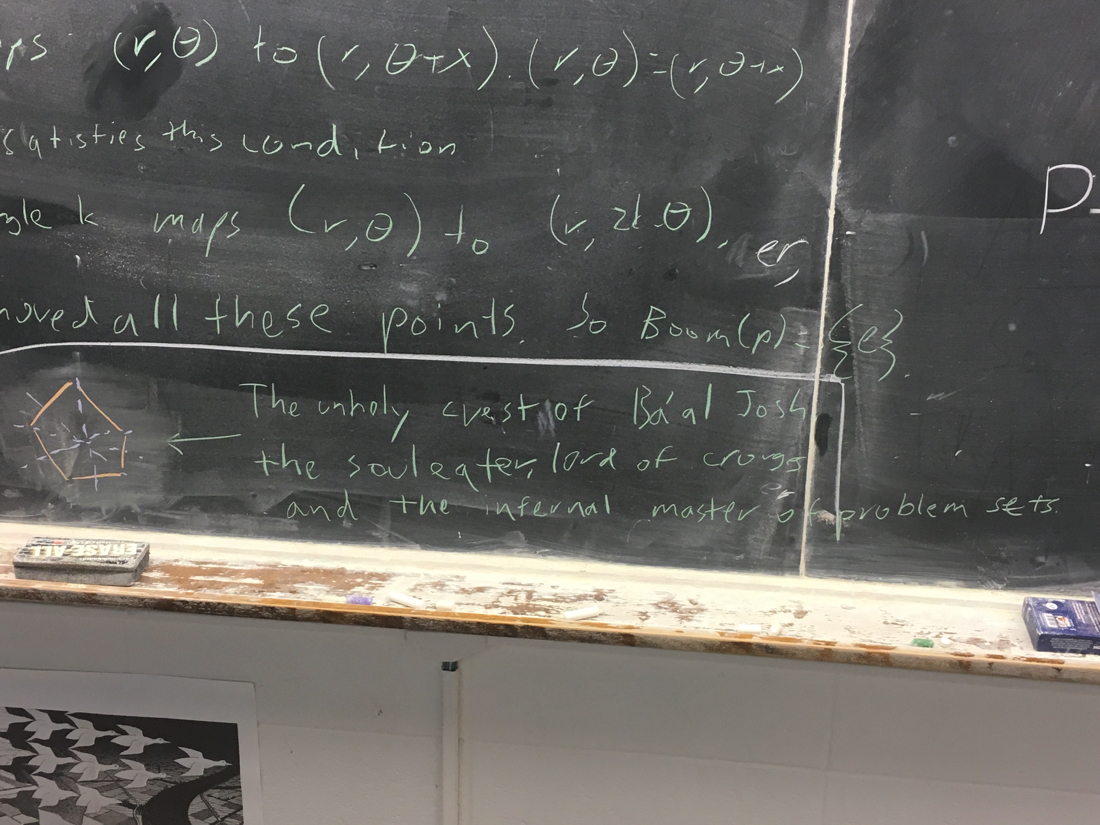 (r,θ) to (r, θ+x). (r,θ)=(r,θ+x)
satisfies this condition
k maps (r,θ) to (r, 2k-θ),
er,
all these points. So Boom(p)={e}.
The unholy crest of Ba'al Josh
the souleater, lord of
and the infernal master of problem sets.
er
P
ERASE-ALL